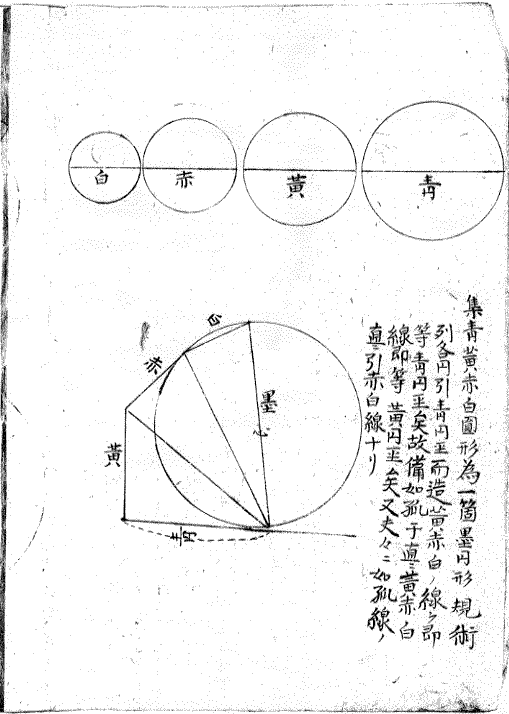 白
赤
黄
青
集青黄赤白圓形為一箇墨円形規術
列各円引青円主而造黄赤白ノ線ヲ即
等青円主矣故備如孤于直ニ黄赤白
線即等黄円主矣又夫々ニ如孤線ノ
直ニ引赤白線ナリ
白
赤
黄
青円
墨
心